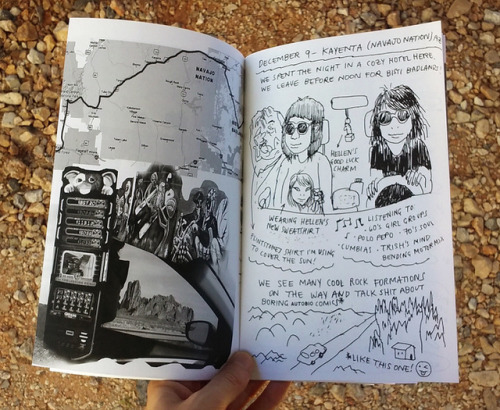 NAVAJO
NATION
DECEMBER 9 - KAYENTA (NAVAJO NATION) AZ
WE SPENT THE NIGHT IN A COZY HOTEL HERE.
WE LEAVE BEFORE NOON FOR BISTI BADLANDS
HELLEN'S
GOOD LUCK
CHARM
WEARING HELLEN'S
NEW SWEATSHIRT
FLINTSTONES SHIRT I'M USING
TO COVER THE SUN!
LISTENING TO
- 60'S GIRL GROUPS
- POLO PEPO - 70'S SOUL
- CUMBIAS - TRISH'S MIND
BENDING MOTORWAY
WE SEE MANY COOL ROCK FORMATIONS
ON THE WAY AND TALK SHIT ABOUT
BORING AUTOBIO COMICS*
*LIKE THIS ONE!